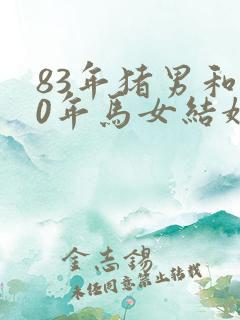 83年猪男和
0年马女结婚
金志锡
未经同意禁止转载